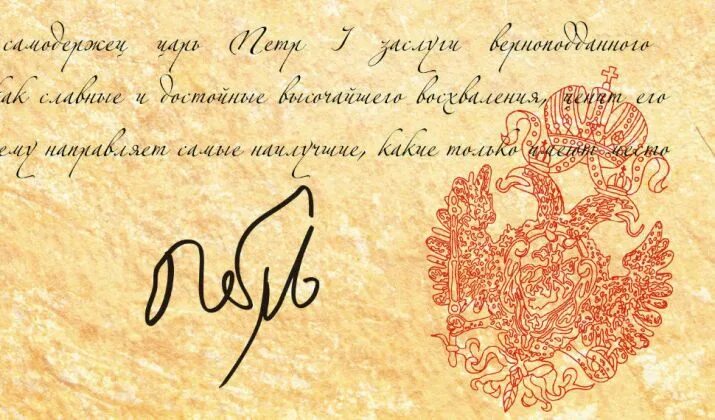 самодержец царь Петр I заслуги верноподданного
как славные и достойные высочайшего восхваления, ценит его
ему направляет самые наилучшие, какие только имеют место
Петр